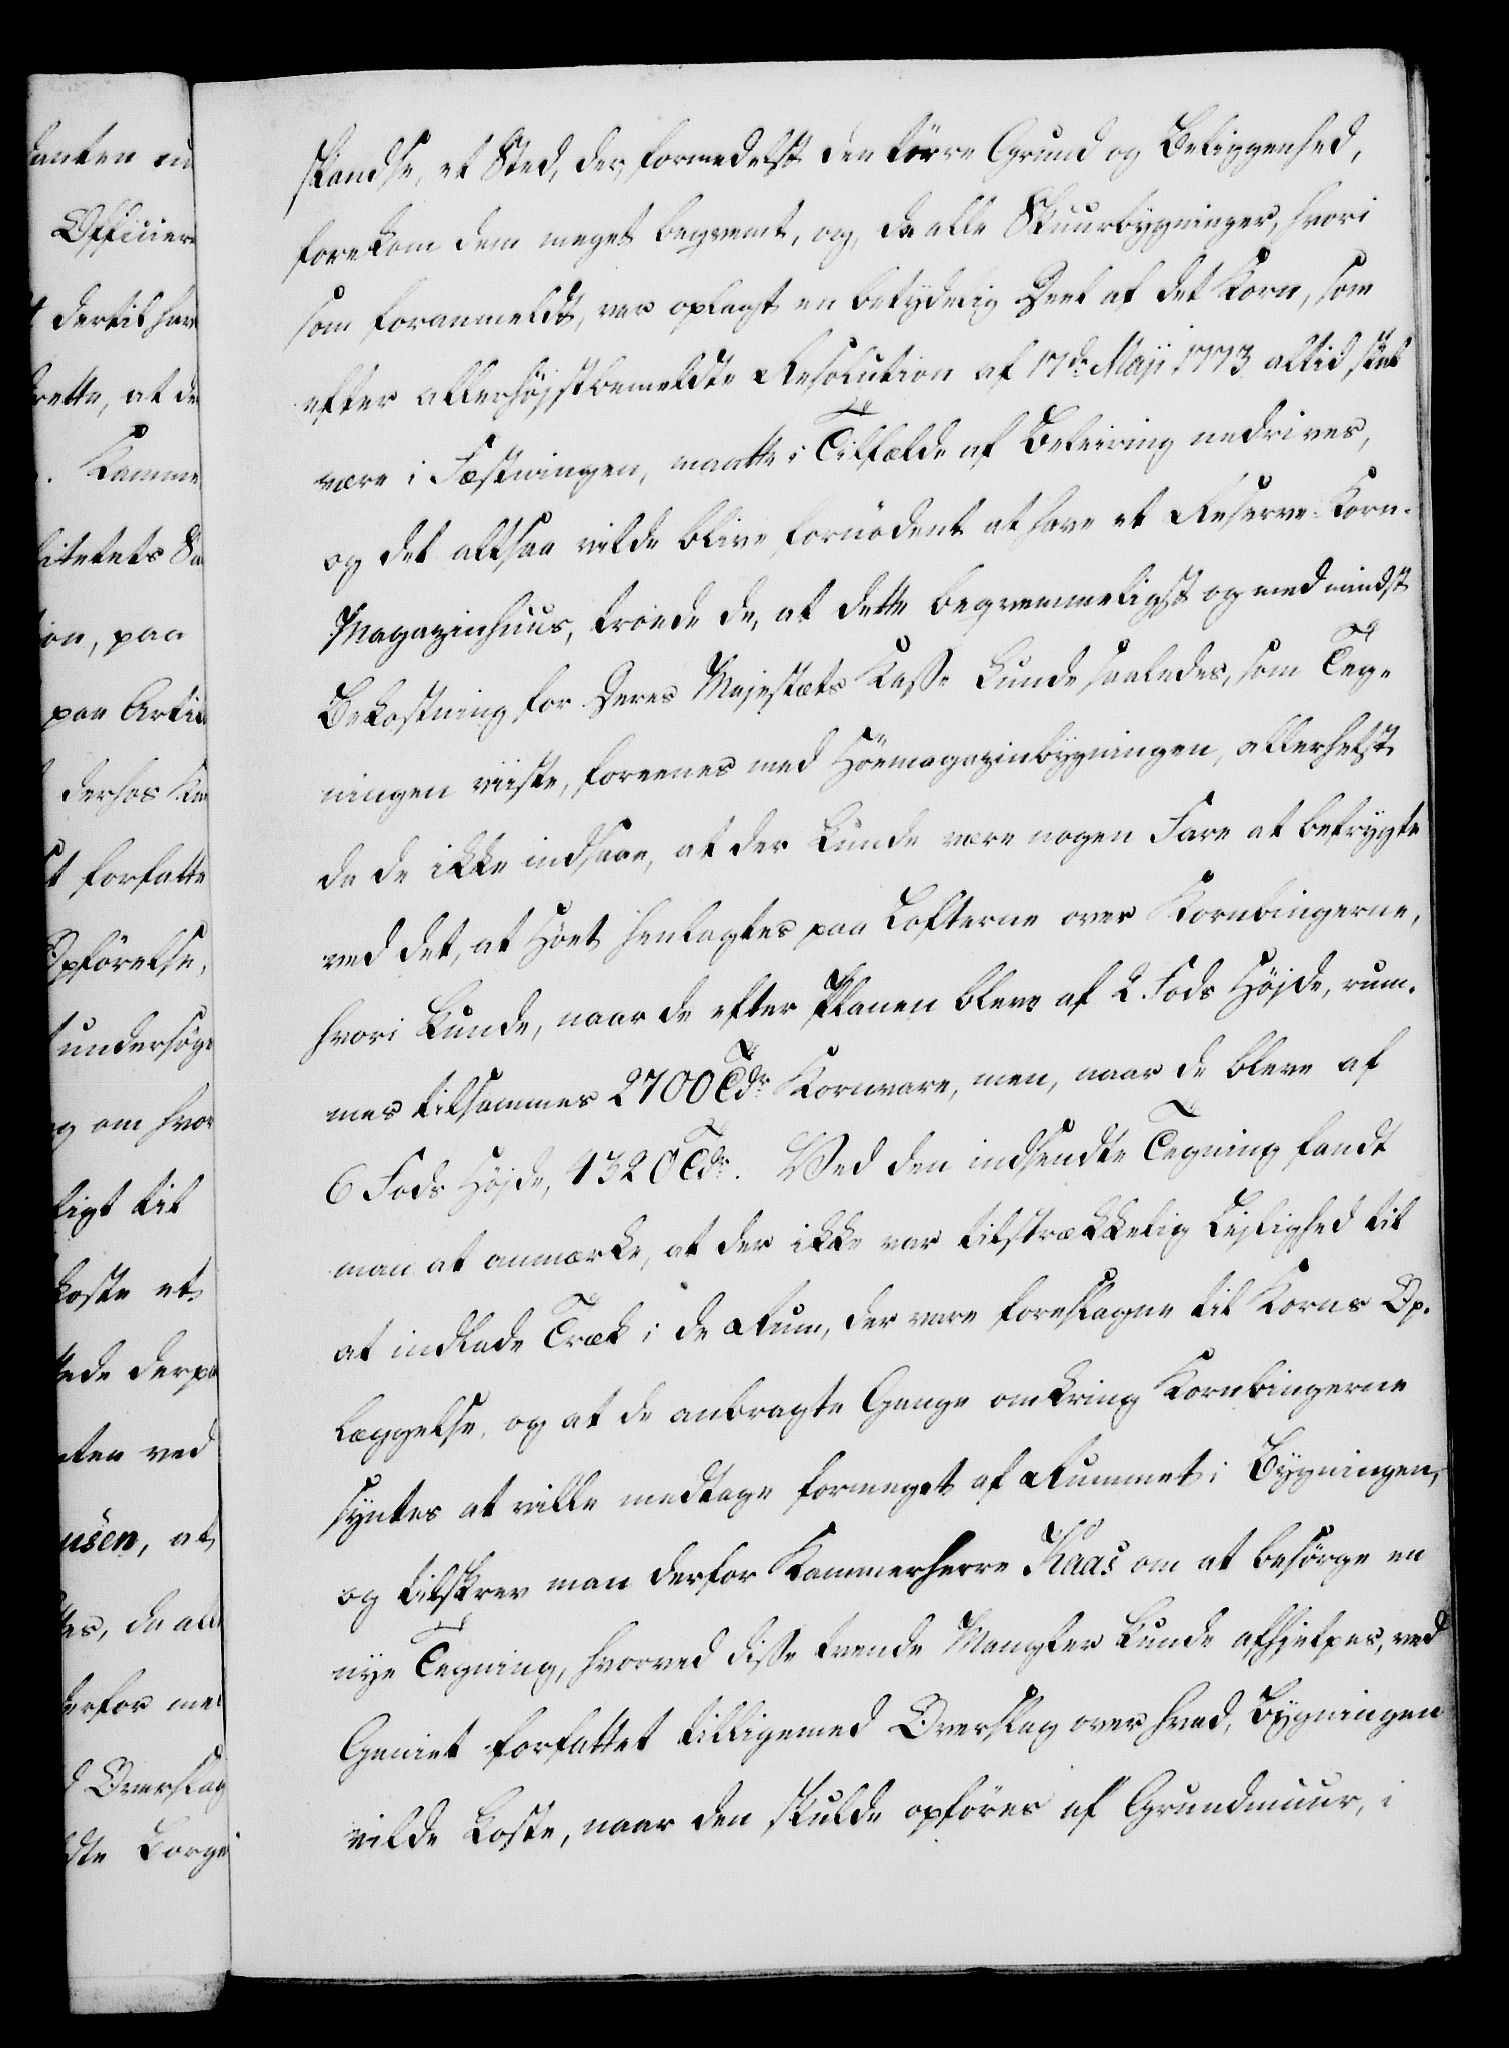 skandse, et Sted, der, formedelst den tørre Grund og Beliggenhed,
forekom dem meget beqvemt, og, da alle Skuurbygninger, hvori
som foranmeldt, var oplagt en betydelig Deel af det Korn, som
efter allerhøjstbemeldte Resolution af 17de Maji 1773 altid skal
være i Fæstningen, maatte i Tilfælde af Beleiring nedrives,
og det altsaa vilde blive fornødent at have et Reserve Korn-
Magazinhuus, troede de, at dette beqvemmeligst og med mindst
Bekostning for Deres Majestæts Kasse kunde saaledes, som Teg-
ningen viiste, foreenes med Høemagazinbygningen, allerhelst
da de ikke indsaae, at der kunde være nogen Fare at befrygte
ved det, at Høet henlagtes paa Lofterne over Kornbingerne,
hvori kunde, naar de efter Planen bleve af 2 Fods Højde, rum-
mes tilsammes 2700 Tdr Kornvare, men, naar de bleve af
6 Fods Højde, 4320 Tdr. Ved den indsendte Tegning fandt
man at anmærke, at der ikke var tilstrækkelig Lejlighed til
at indlade Træk i de Rum, der vare foreslagne til Korns Op-
læggelse, og at de anbragte Gange omkring Kornbingerne
syntes at ville medtage formeget af Rummet i Bygningen,
og tilskrev man derfor Kammerherre Kaas om at besørge en
nye Tegning, hvorved disse tvende Mangler kunde afhjelpes, ved
Geniet forfattet tilligemed Overslag over hvad, Bygningen
vilde koste, naar den skulde opføres af Grundmuur, i